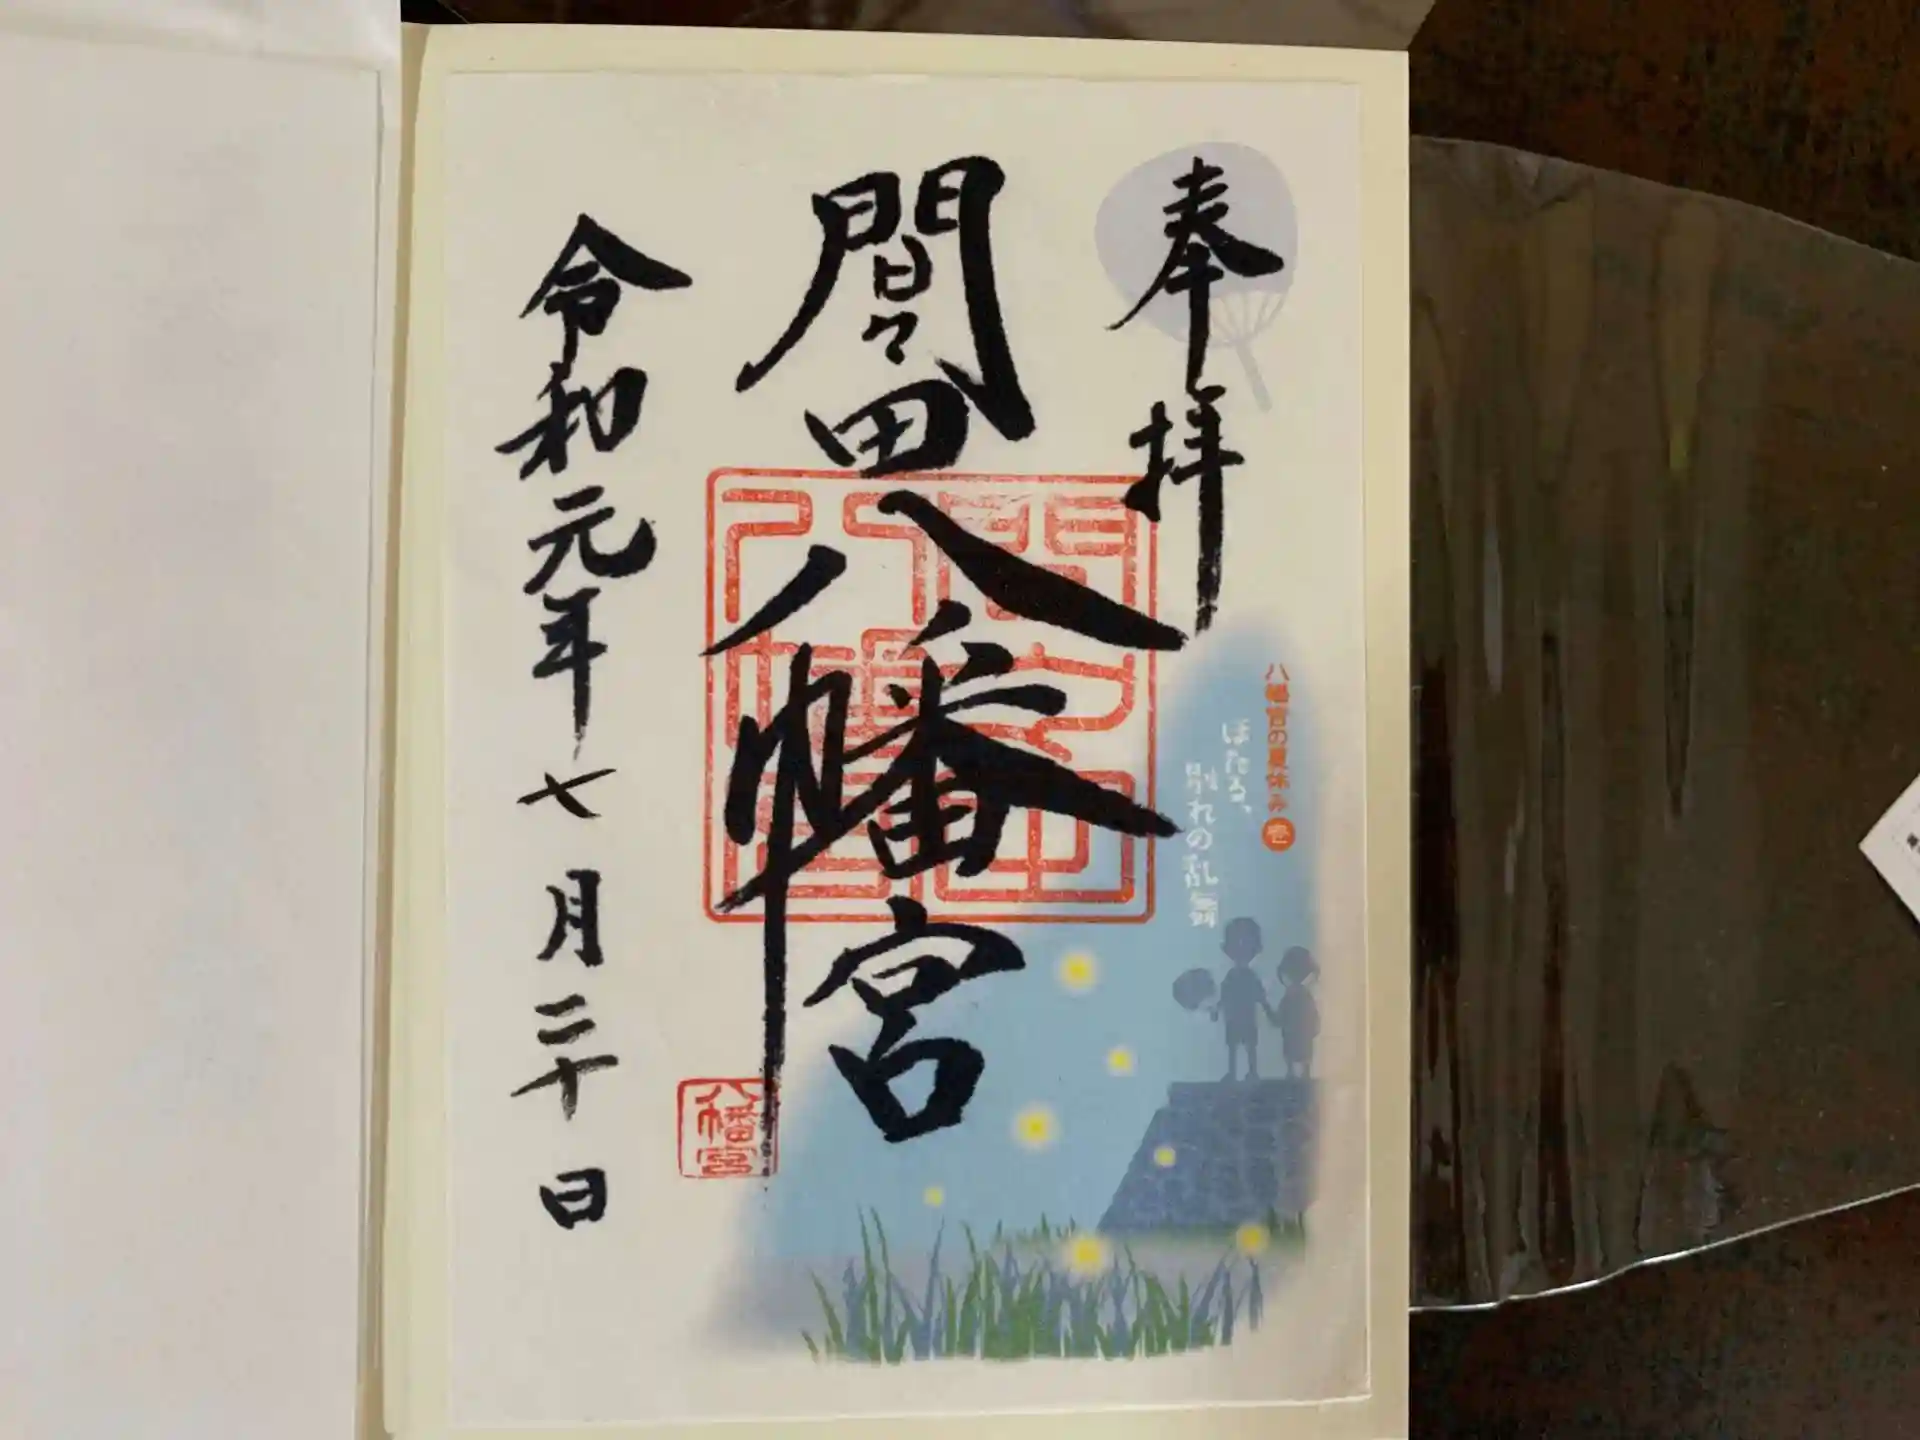 奉拝
八幡宮の夏休み 壱
ほたる、
別れの乱舞
間々田八幡宮
八幡宮
令和元年七月二十日